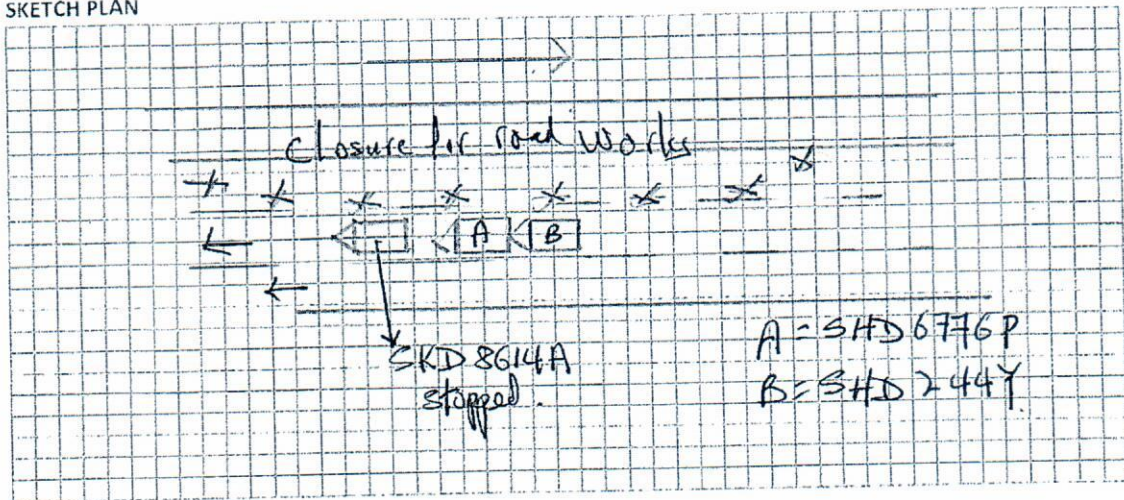 SKETCH PLAN
Closure for road works
A B
SKD8614A
stopped.
A = SHD 6776P
B = SHD 244Y